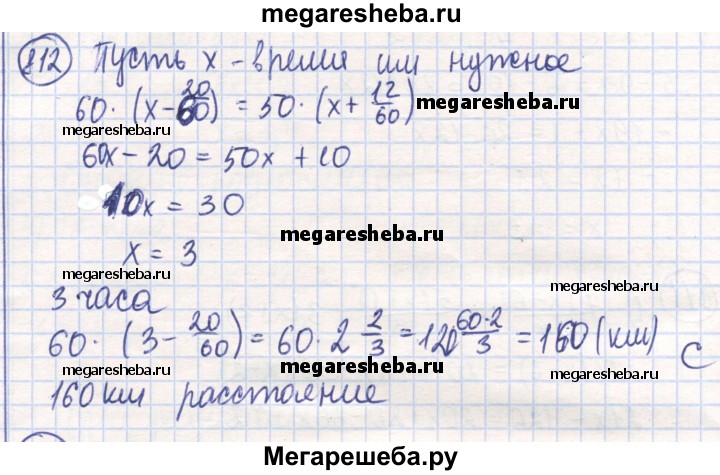 megaresheba.ru
812 Пусть x - время им нужное
60·(x-20/60) = 50·(x+12/60)
megaresheba.ru
megaresheba.ru
60x-20 = 50x+10
10x = 30
megaresheba.ru
megaresheba.ru
x = 3
megaresheba.ru
3 часа
60·(3-20/60) = 60·2 2/3 = 120 60·2/3 = 160 (км) C
megaresheba.ru
160 км расстояние
megaresheba.ru
Мегарешеба.ру